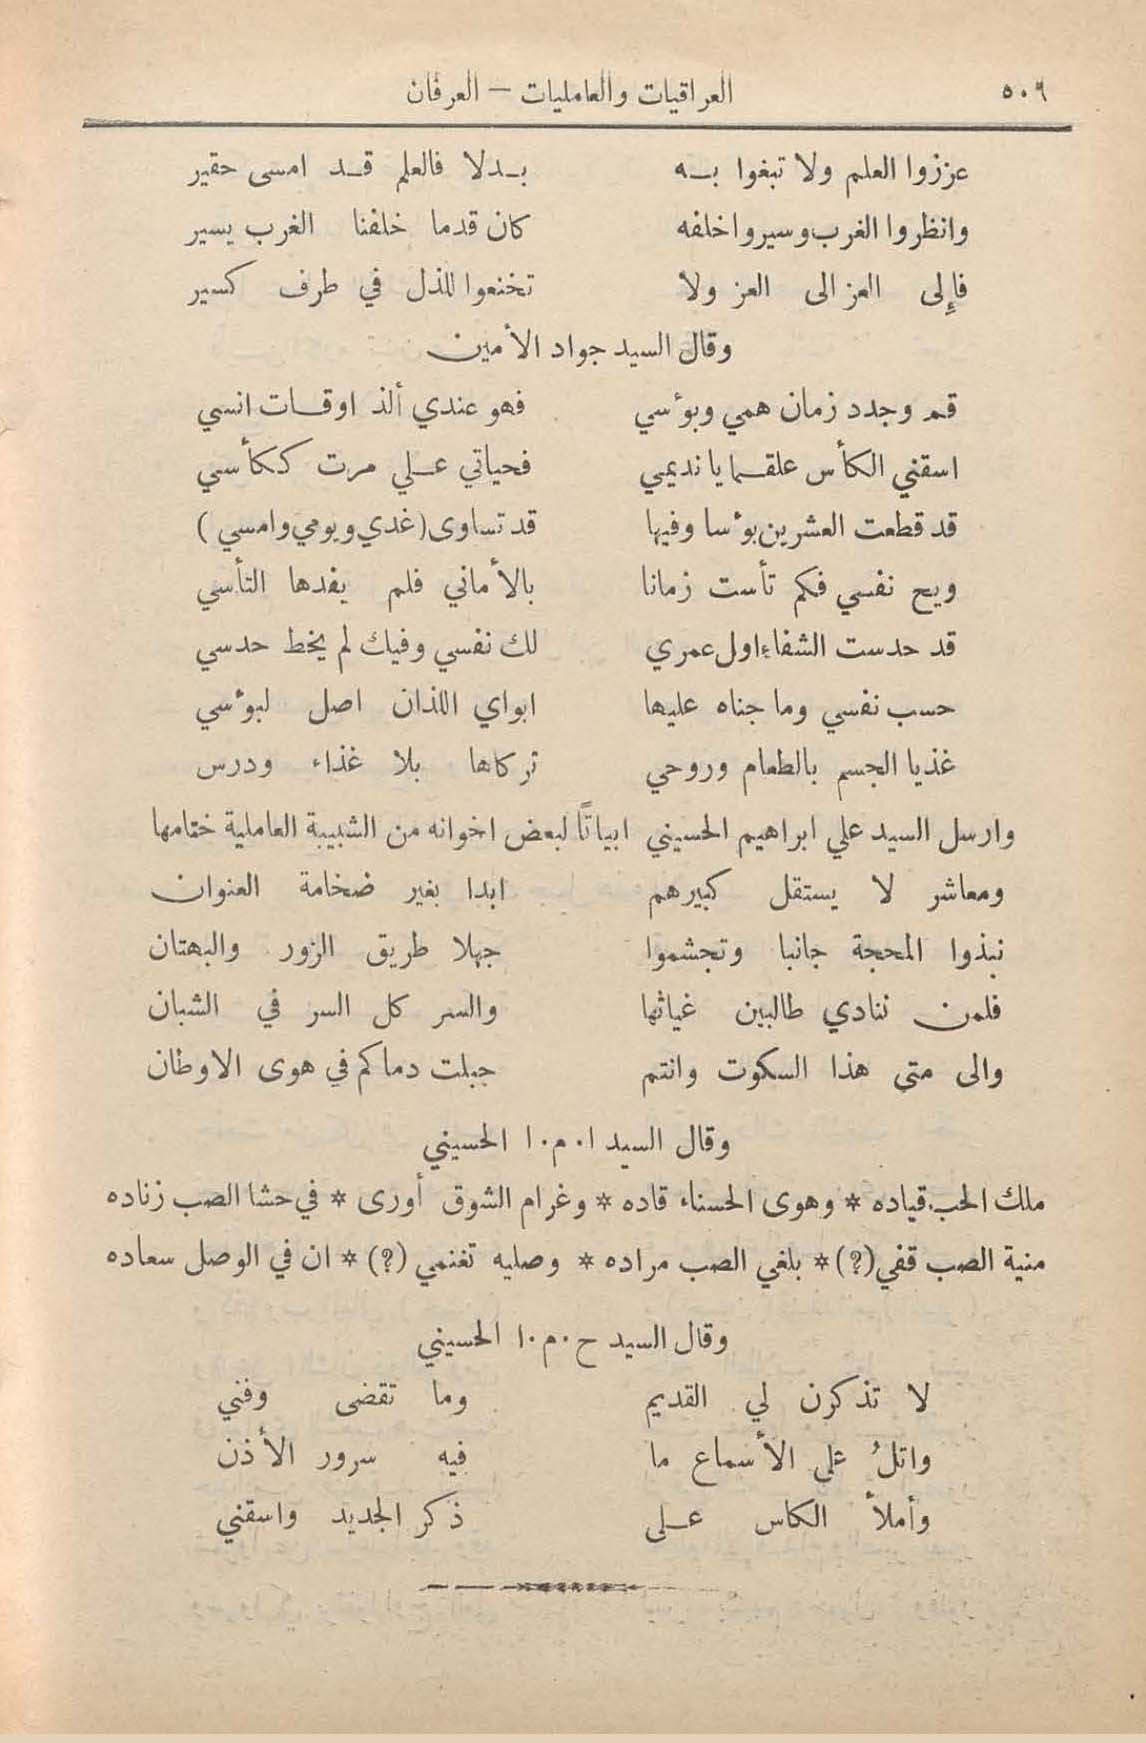 ٥٠٩ العراقيات والعامليات — العرفان
عززوا العلم ولا تبغوا بـــه بـدلا فالعلم قـد امسى حقير
وانظروا الغرب وسيروا خلفه كان قدما خلفنا الغرب يسير
فإلى العز الى العز ولا تخنعوا للذل في طرف كسير
وقال السيد جواد الأمين
قم وجدد زمان همي وبؤسي فهو عندي ألذ اوقات انسي
اسقني الكأس علقما يا نديمي فحياتي عـلي مرت ككأسي
قد قطعت العشرين بؤسا وفيها قد تساوى (غدي ويومي وامسي)
ويح نفسي فكم تأست زمانا بالأماني فلم يفدها التأسي
قد حدست الشفاء اول عمري لك نفسي وفيك لم يخط حدسي
حسب نفسي وما جناه عليها ابواي اللذان اصل لبؤسي
غذيا الجسم بالطعام وروحي تركاها بلا غذاء ودرس
وارسل السيد علي ابراهيم الحسيني ابياتًا لبعض اخوانه من الشبيبة العاملية ختامها
ومعاشر لا يستقل كبيرهم ابدا بغير ضخامة العنوان
نبذوا المحجة جانبا وتجشموا جهلا طريق الزور والبهتان
فلمن ننادي طالبين غياثها والسر كل السر في الشبان
والى متى هذا السكوت وانتم جبلت دماكم في هوى الاوطان
وقال السيد ا. م. ا الحسيني
ملك الحب قياده * وهوى الحسناء قاده * وغرام الشوق أورى * في حشا الصب زناده
منية الصب قفي (؟) * بلغي الصب مراده * وصليه تغنمي (؟) * ان في الوصل سعاده
وقال السيد ح. م. ا الحسيني
لا تذكرن لي القديم وما تقضى وفني
واتلُ على الأسماع ما فيه سرور الأذن
وأملأ الكاس عـلى ذكر الجديد واسقني